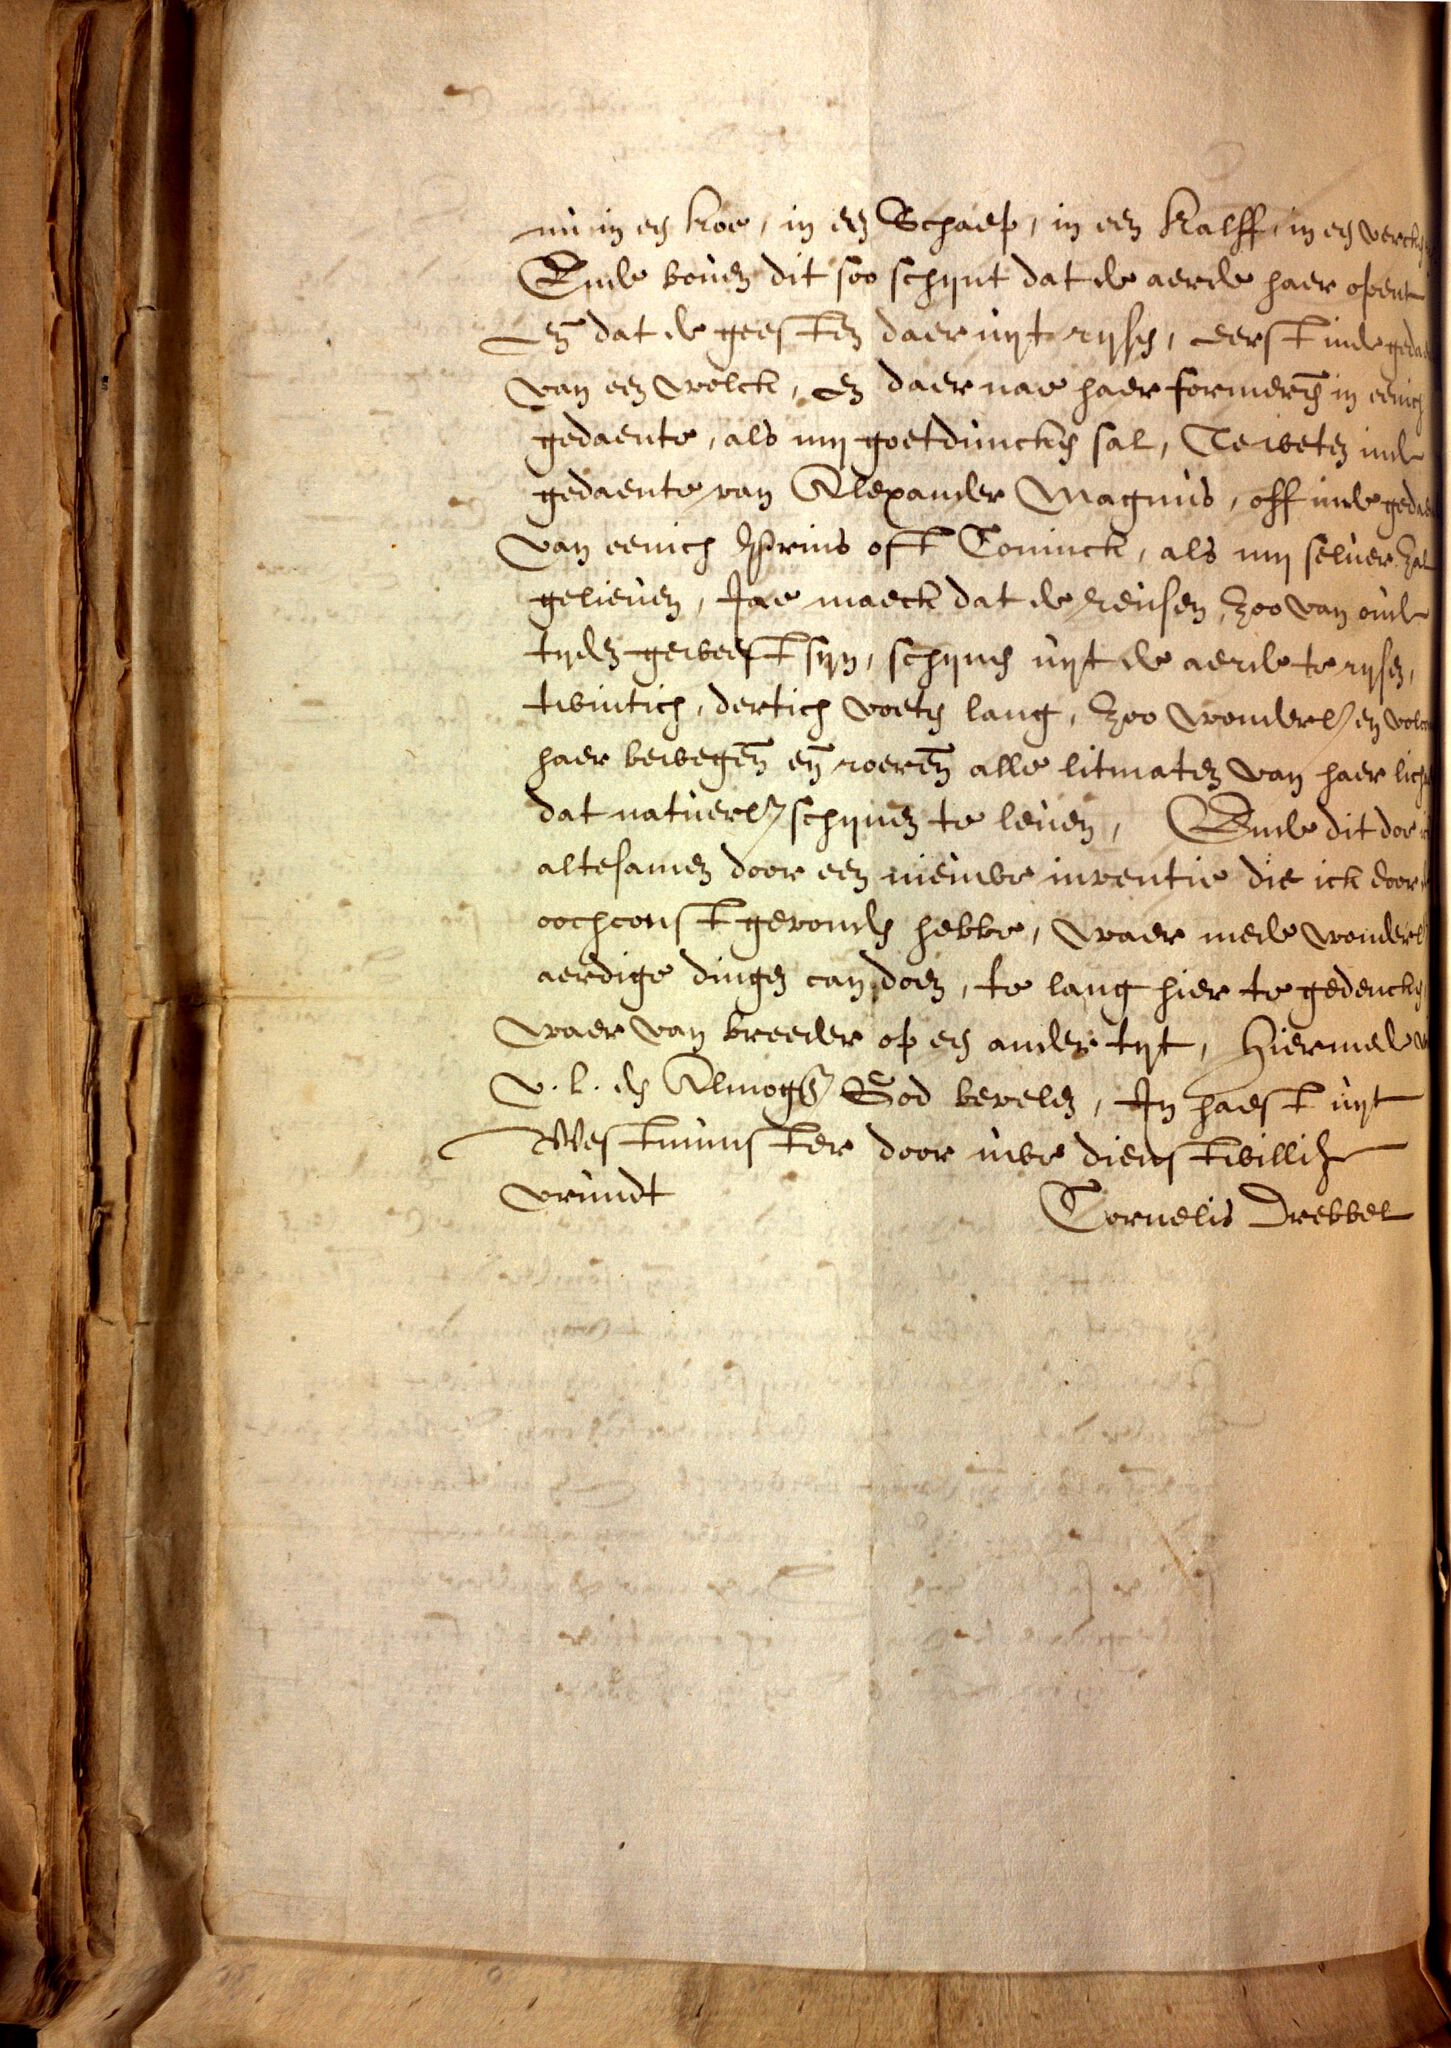 nu in een Koe, in een Schaep, in een Kalff, in een vercken
Ende boven dit soo schynt dat de aerde haer opent
En dat de geesten daer uyt rysen, eerst inde geda
van een wolck, en daer nae haer formeren in eenich
gedaente, als my goetduncken sal, Te weten inde
gedaente van Alexander Magnus, off inde gedae
van eenich Prins oft Coninck, als my selver zal
gelieven, Jae maeck dat de reusen, zoo van oude
tyden geweest syn, schynen uyt de aerde te rysen,
twintich, dertich voeten lang, zoo wonderl en vol
haer bewegen en roeren alle litmaten van haer lich
dat natuerl schynen te leven, Ende dit doe ick
altesamen door een nieuwe inventie die ick door
oochconst gevonden hebbe, waer mede wonderl
aerdige dingen can doen, te lang hier te gedencken
waer van breeder op een ander tyt, Hiermede
v. l. den Almog God bevelen, In haest uyt
Westmunster door uwe dienstwillich
vrundt Cornelis Drebbel